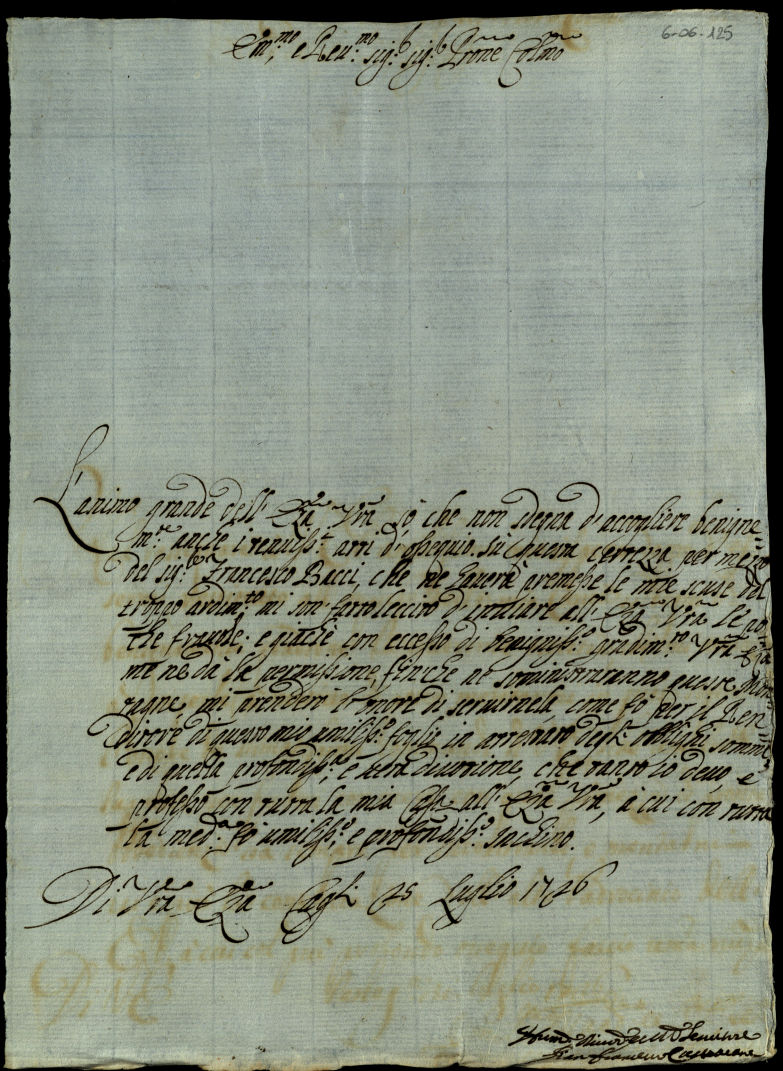 6-06-125
Em.mo e Reu.mo sig.r sig.r Prone Colmo
L'animo grande dell' Eza Vra sò che non sdegna d'accogliere benigne=
m.te anche i tenuiss.i atti d'ossequio. Sù questa certezza per mezzo
del sig.r Francesco Bacci, che ne haverà premesse le mie scuse del
troppo ardim.to mi son fatto lecito d'inuiare all' Eza Vra le po=
che ; e giache con eccesso di benigniss.o gradim.to Vra Eza
me ne dà la permissione, finche ne somministraranno queste Mon=
tagne, mi prenderò l'onore di seruirnela, come fò per il Ren=
ditore di questo mio umiliss.o foglio in attestato degl' obblighi sommi
e di questa profondiss.a e vera diuozione, che tanto io deuo, e
professo con tutta la mia Casa all' Eza Vra, à cui con tutta
la med.a fò umiliss.o, e profondiss.o inchino.
Di Vra Eza Cagli 25 Luglio 1726